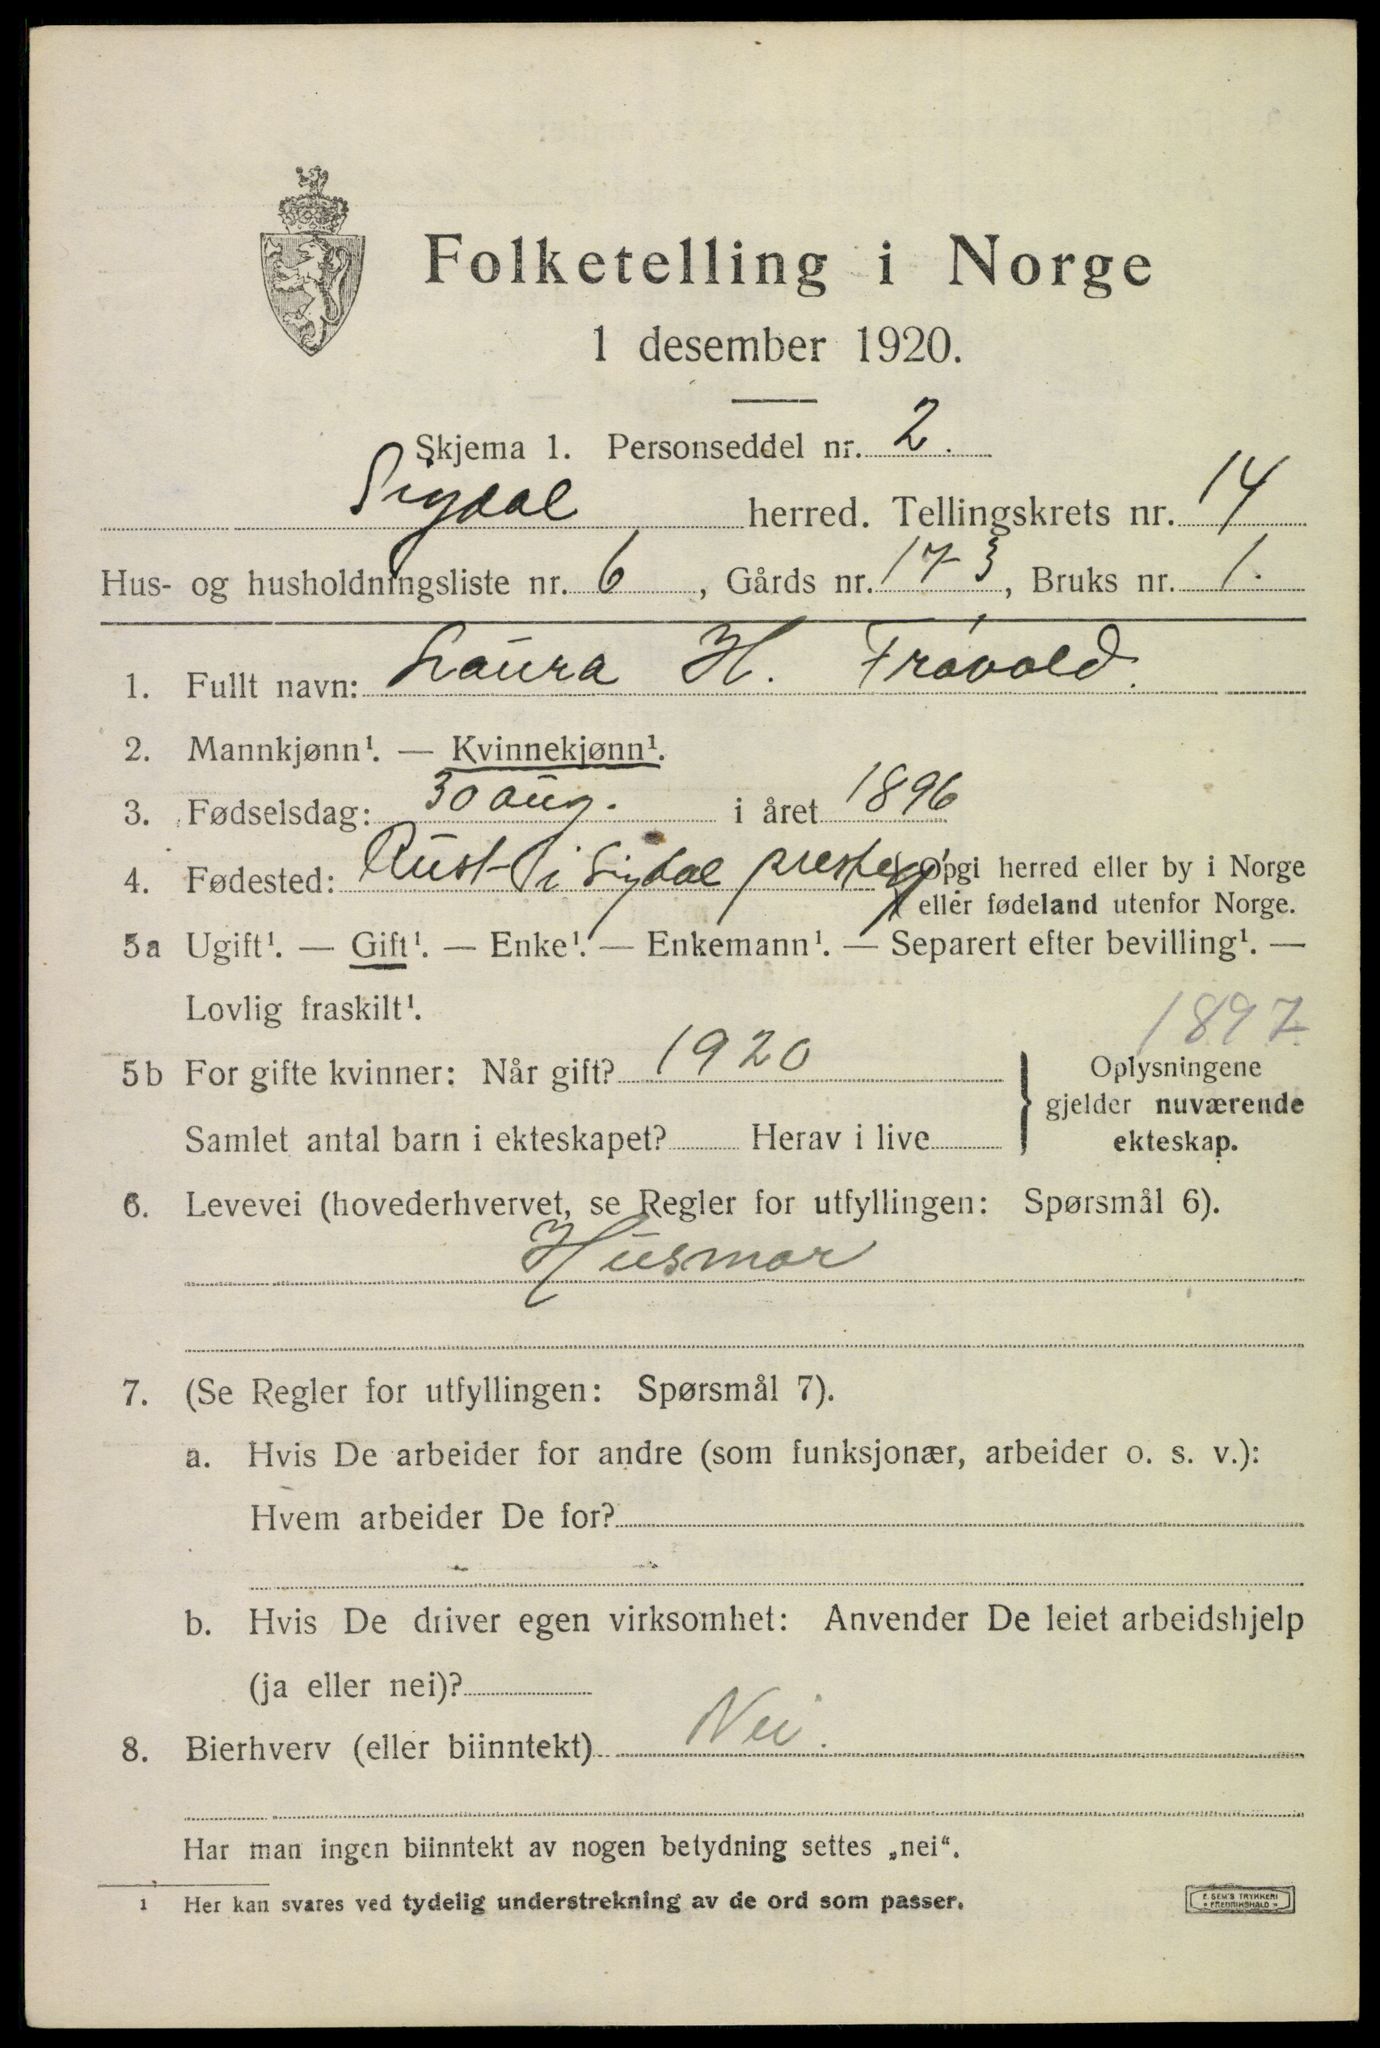 Folketelling i Norge
1 desember 1920.
Skjema 1. Personseddel nr. 2.
Sigdal herred. Tellingskrets nr. 14
Hus- og husholdningsliste nr. 6, Gårds nr. 173, Bruks nr. 1.
1. Fullt navn: Laura H. Frøvold.
2. Mannkjønn¹. — Kvinnekjønn¹.
3. Fødselsdag: 30 aug. i året 1896
4. Fødested: Rust i Sigdal presteg. (Opgi herred eller by i Norge
eller fødeland utenfor Norge.
5a Ugift¹. — Gift¹. — Enke¹. — Enkemann¹. — Separert efter bevilling¹. —
Lovlig fraskilt¹.
1897
5b For gifte kvinner: Når gift? 1920
Samlet antal barn i ekteskapet? Herav i live
Oplysningene
gjelder nuværende
ekteskap.
6. Levevei (hovederhvervet, se Regler for utfyllingen: Spørsmål 6).
Husmor
7. (Se Regler for utfyllingen: Spørsmål 7).
a. Hvis De arbeider for andre (som funksjonær, arbeider o. s. v.):
Hvem arbeider De for?
b. Hvis De driver egen virksomhet: Anvender De leiet arbeidshjelp
(ja eller nei)?
8. Bierhverv (eller biinntekt) Nei.
Har man ingen biinntekt av nogen betydning settes „nei“.
1 Her kan svares ved tydelig understrekning av de ord som passer.
E. SEM'S TRYKKERI
FREDRIKSHALD